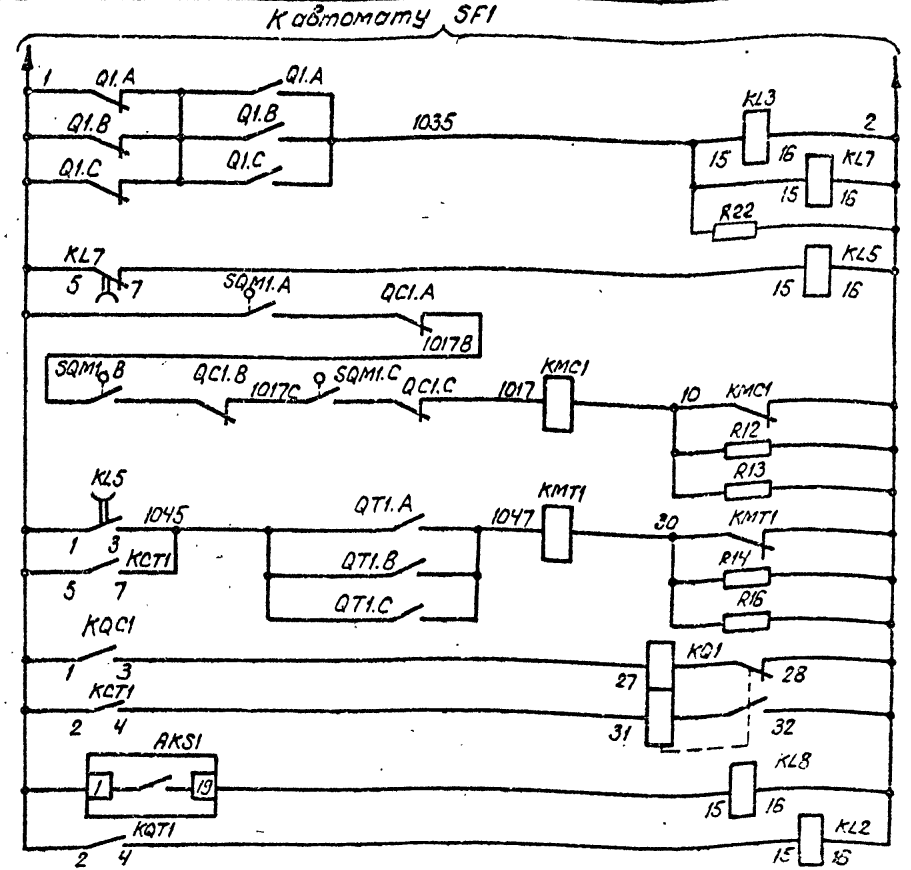 К автомату SF1
1 Q1.A Q1.A
Q1.B Q1.B 1035 KL3 2
Q1.C Q1.C 15 16 KL7
15 16
R22
KL7 KL5
5 7 15 16
SQM1.A QC1.A
1017B
SQM1.B QC1.B 1017C SQM1.C QC1.C 1017 KMC1 10 KMC1
R12
R13
KL5
1 3 1045 QT1.A 1047 KMT1 30 KMT1
5 7 KCT1 QT1.B R14
QT1.C R16
KQC1
1 3 27 KQ1 28
KCT1
2 4 31 32
AKS1
1 19 15 16 KL8
KQT1
2 4 15 16 KL2